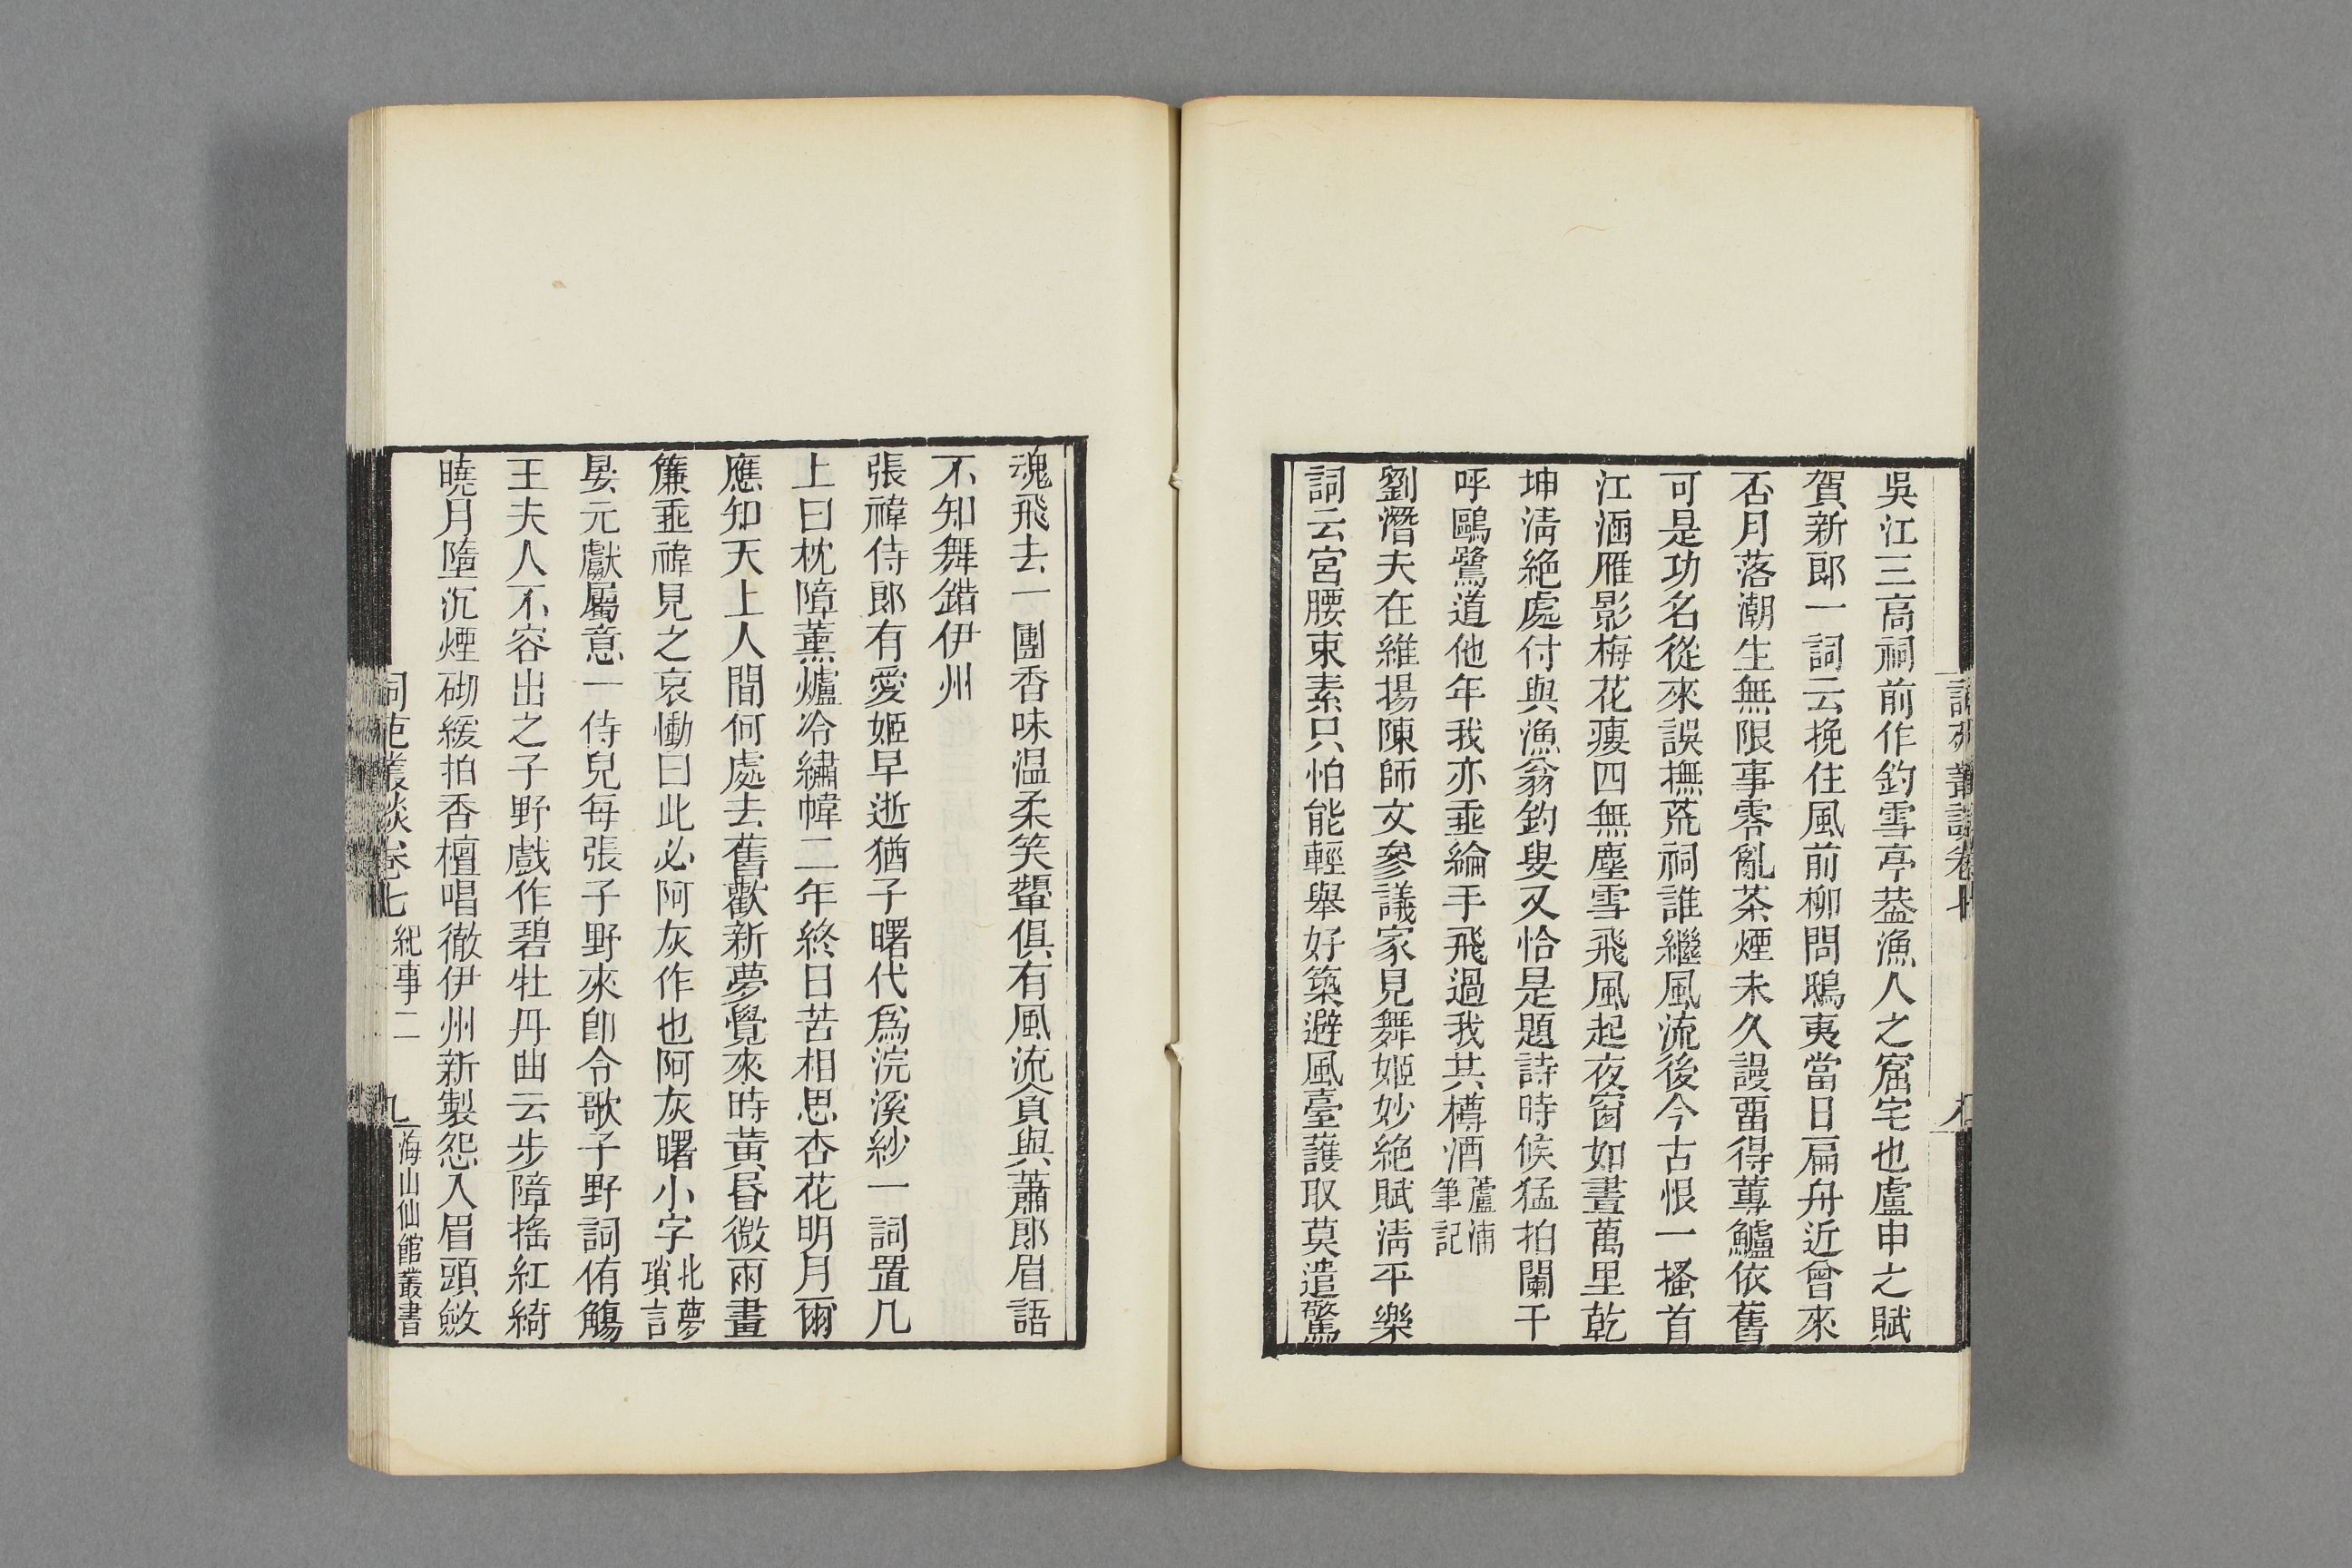 吳江三高祠前作釣雪亭葢漁人之窟宅也盧申之賦
賀新郎一詞云挽住風前柳問鴟夷當日扁舟近曾來
否月落潮生無限事零亂茶煙未久謾畱得蓴鱸依舊
可是功名從來誤撫荒祠誰繼風流後今古恨一搔首
江涵雁影梅花瘦四無塵雪飛風起夜窗如晝萬里乾
坤淸絕處付與漁翁釣叟又恰是題詩時候猛拍闌干
呼鷗鷺道他年我亦垂綸手飛過我共樽酒蘆浦筆記
劉潛夫在維揚陳師文參議家見舞姬妙絕賦淸平樂
詞云宮腰束素只怕能輕舉好築避風臺護取莫遣驚
魂飛去一團香味温柔笑顰俱有風流貪與蕭郎眉語
不知舞錯伊州
張禕侍郎有愛姬早逝猶子曙代爲浣溪紗一詞置几
上曰枕障薰爐冷繡幃二年終日苦相思杏花明月爾
應知天上人間何處去舊歡新夢覺來時黃昏微雨畫
簾垂禕見之哀慟曰此必阿灰作也阿灰曙小字北夢瑣言
晏元獻屬意一侍兒每張子野來卽令歌子野詞侑觴
王夫人不容出之子野戲作碧牡丹曲云步障搖紅綺
曉月墮沉煙砌緩拍香檀唱徹伊州新製怨入眉頭斂
詞苑叢談卷七 紀事二 九 海山仙館叢書